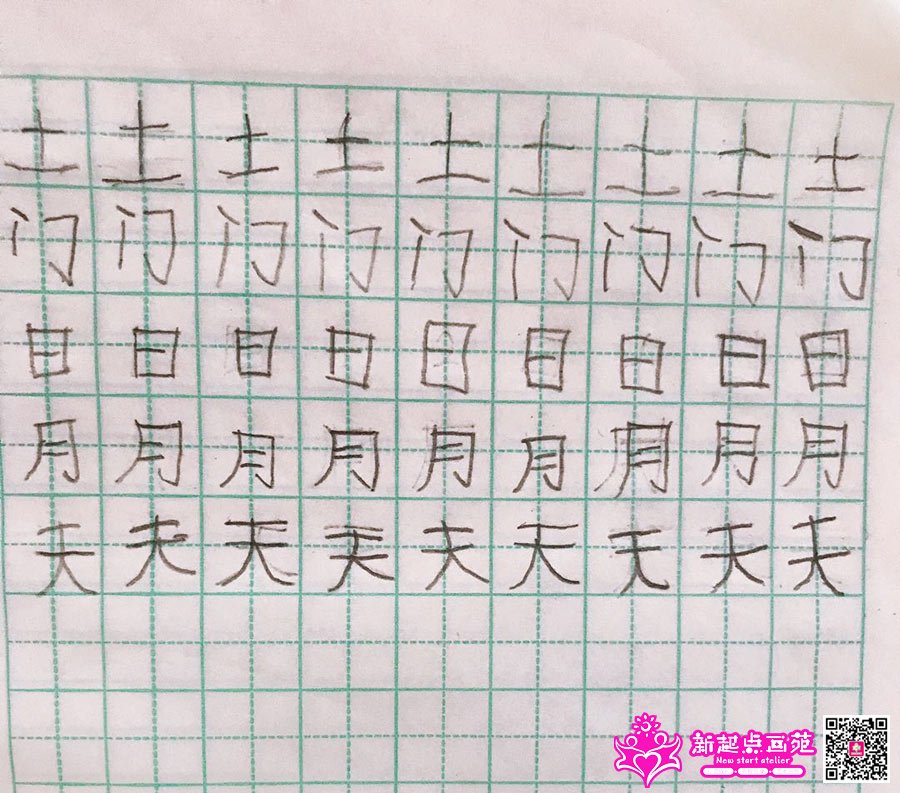 土土土土土土土土土
门门门门门门门门门
日日日日日日日日日
月月月月月月月月月
天天天天天天天天天
新起点画苑
New start atelier